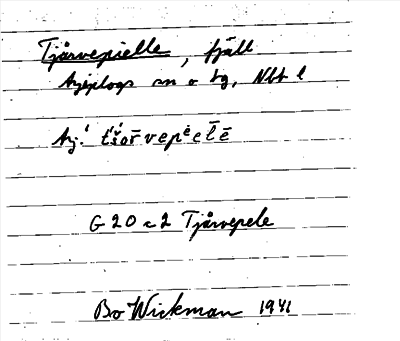 Tjårvepielle, fjäll
Arjeplogs sn o tg, Nbt l
Arj. t́š́or̄vepėēl̄ē
G 20 c 2 Tjårvepele
Bo Wickman 1941